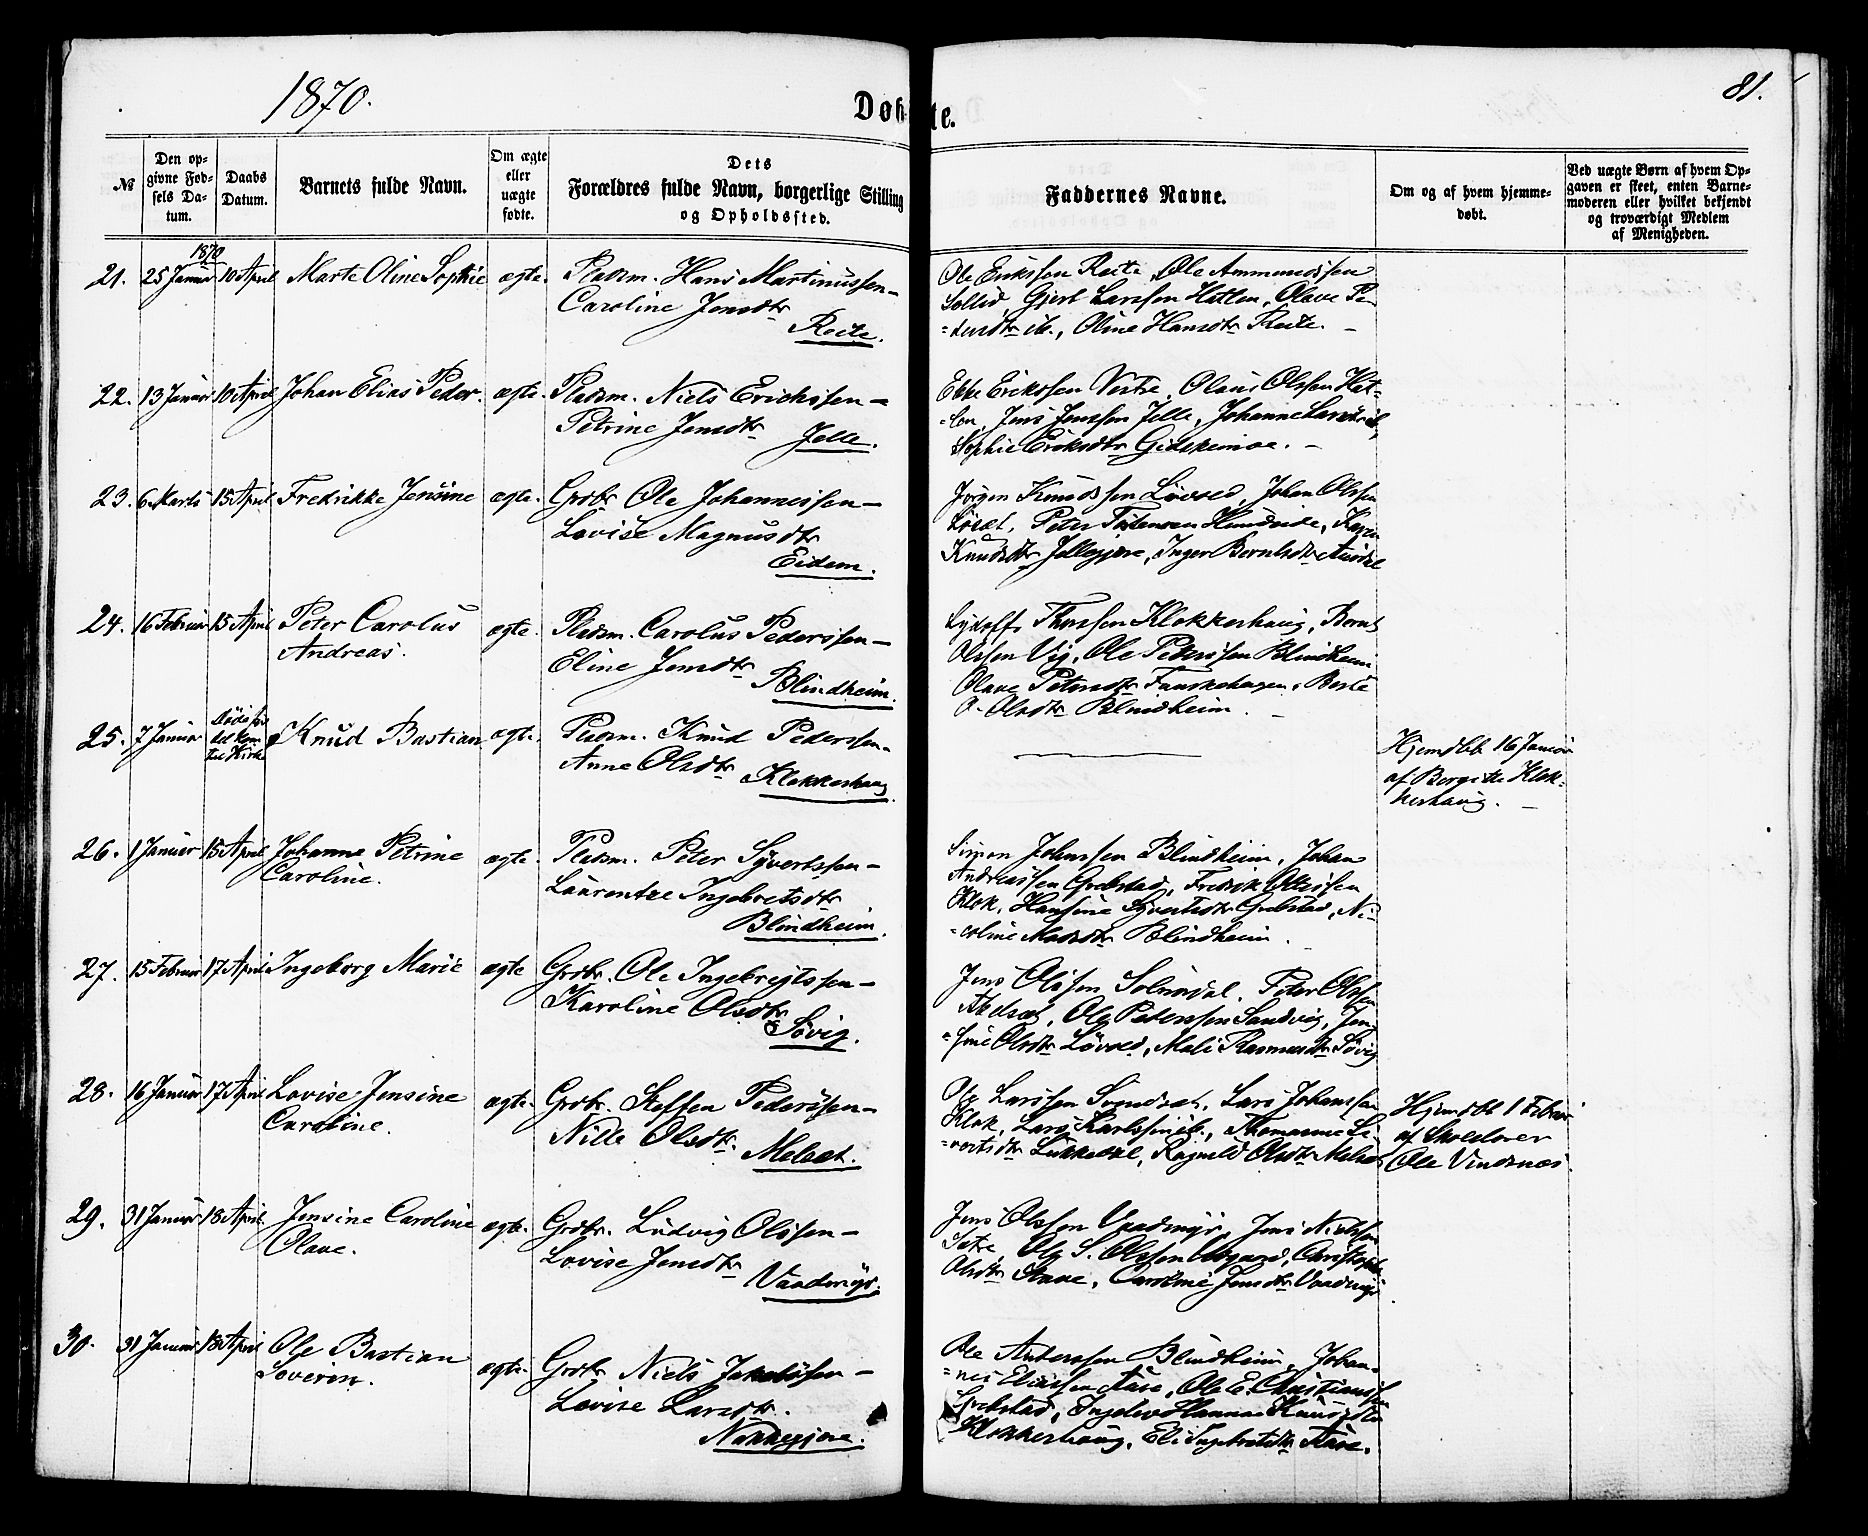 1870.
Døbte.
81.
№
Den op-
givne Fød-
sels Da-
tum.
Daabs
Datum.
Barnets fulde Navn.
Om ægte
eller
uægte
fødte.
Dets
Forældres fulde Navn, borgerlige Stilling
og Opholdssted.
Faddernes Navne.
Om og af hvem hjemme-
døbt.
Ved uægte Børn af hvem Op-
gaven er skeet, enten Barne-
moderen eller hvilket bekjendt
og troværdigt Medlem
af Menigheden.
1870
21. 25 Januar 10 April Marte Oline Sophie ægte. Pladsm. Hans Martinussen –
Caroline Jensdtr
Reite.
Ole Erikssen Reite, Ole Ammundssen
Sollid, Gjert Larssen Hatlen, Olave Pe-
=dersdtr ib., Oline Hansdtr Reite. –
22. 13 Januar 10 April Johan Elias Peder. ægte. Pladsm. Niels Erichssen –
Petrine Jensdtr Jelle.
Ebbe Erikssen Vestre, Olaus Olssen Hat-
=len, Jens Jenssen Jelle, Johanne Larsdtr ib.,
Sophie Eriksdtr Gidskemoe. –
23. 6 Marts 15 April Fredrikke Jensine ægte. Grdbr. Ole Johannessen –
Lovise Magnusdtr
Eidem.
Jørgen Knudssen Løvold, Johan Olssen
Peter Karen
Knudsdtr Jellegjære, Inger Berntsdtr
24. 16 Februar 15 April Peter Carolus
Andreas.
ægte. Pladsm. Carolus Pederssen –
Eline Jensdtr
Blindheim.
Lydolf Klokkerhaug, Bernt
Olssen Vig, Ole Pederssen Blindheim
Olave Petersdtr Fauskehagen, Berte
O. Olsdtr Blindheim. –
25. 7 Januar Døde før
det kom
til Kirke
Knud Bastian ægte. Pladsm. Knud Pederssen –
Anne Olsdtr Klokkerhaug.
Hjemdøbt 16 Januar
af Bergitte Klok-
kerhaug. –
26. 1 Januar 15 April Johanne Petrine
Caroline.
ægte. Pladsm. Peter Syvertssen –
Laurentze Ingebretsdtr
Blindheim.
Simon Johnssen Blindheim, Johan
Andreassen Grebstad, Fredrik
Klok, Hansine Syvertsdtr Grebstad, Ni-
=coline Madsdtr Blindheim.
27. 15 Februar 17 April Ingeborg Marie ægte Grdbr. Ole Ingebregtssen –
Karoline Olsdtr
Søvig.
Jens Olssen Solnørdal, Peter Olssen
Ole Pederssen Sandvig, Jen-
=sine Olsdtr Løvold, Mali Rasmusdtr Søvig
28. 16 Januar 17 April Lovise Jensine
Caroline.
ægte. Grdbr. Steffen Pederssen –
Nille Olsdtr. Melsæt.
Ole Larssen Lars Johanssen
Klok, Lars Karlssen ib., Thomasine Si-
=vertsdtr Lukkedal, Ragnild Olsdtr Melsæt
Hjemdøbt 1 Februar
af Skolelærer
Ole Vindsnæs.
29. 31 Januar 18 April Jensine Caroline
Olave.
ægte. Grdbr. Ludvig Olssen –
Lovise Jensdtr
Vaadmyr.
Jens Olssen Vaadmyr, Jens Nielssen
Sætre, Ole S. Olssen
Olsdtr Caroline Jensdtr Vaadmyr.
30. 31 Januar 18 April Ole Bastian
Soverin.
ægte. Grdbr. Niels Jakobssen –
Lovise Larsdtr.
Nakkegjære.
Ole Anderssen Blindheim, Johan-
=nes Eliassen Ole E. Christianssen
Grebstad, Hanna Knudsdtr
Klokkerhaug, Eli Ingebretsdtr